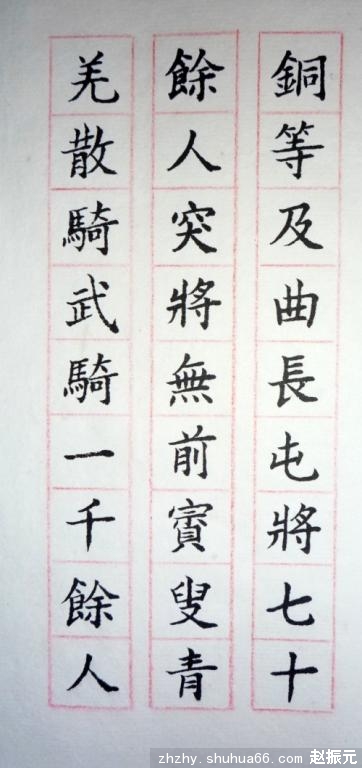 銅等及曲長屯將七十
餘人突將無前賨叟青
羌散騎武騎一千餘人
zhzhy.shuhua66.com 赵振元